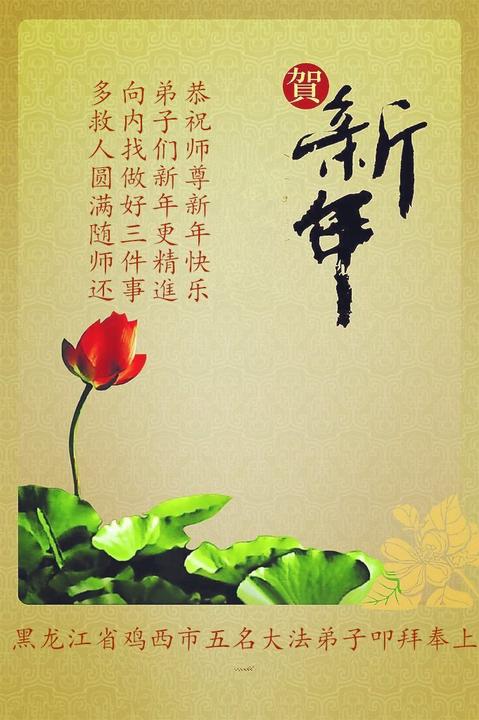 賀
新年
恭祝师尊新年快乐
弟子们新年更精進
向内找做好三件事
多救人圆满随师还
黑龙江省鸡西市五名大法弟子叩拜奉上